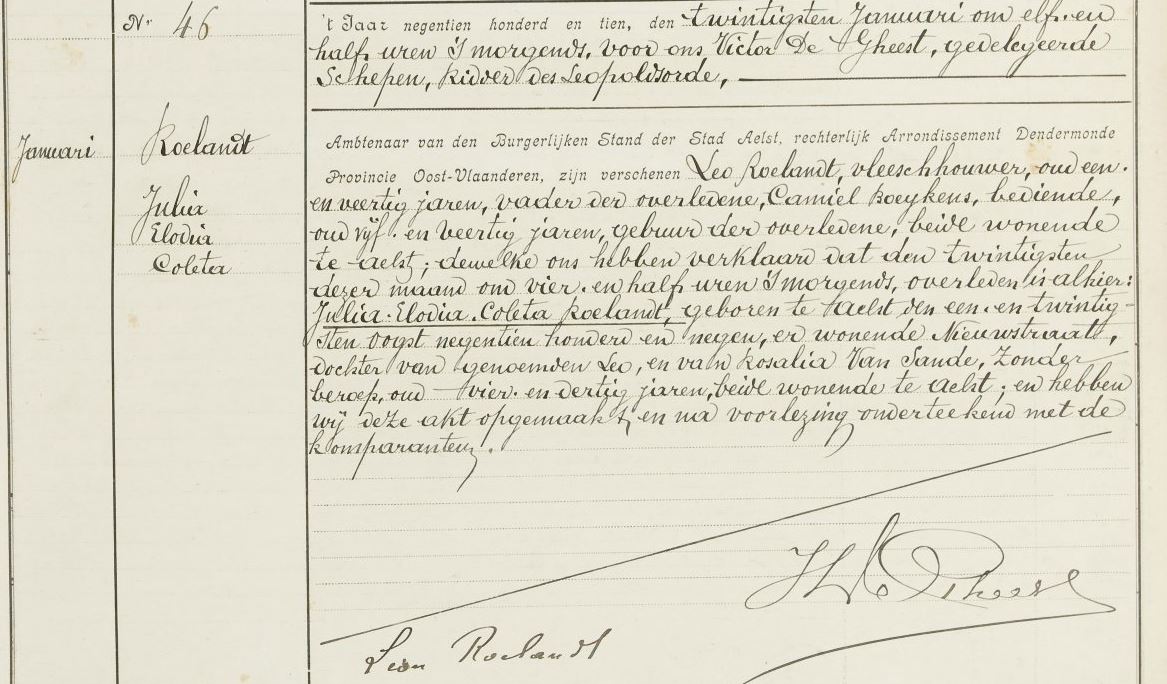 Nr 46
Januari
Roelandt
Julia
Elodia
Coleta
't Jaar negentien honderd en tien, den twintigsten Januari om elf. en
half uren 's morgends, voor ons Victor De Gheest, gedelegeerde
Schepen, Ridder des Leopoldsorde,
Ambtenaar van den Burgerlijken Stand der Stad Aelst, rechterlijk Arrondissement Dendermonde
Provincie Oost-Vlaanderen, zijn verschenen Leo Roelandt, vleeschhouwer, oud een.
en veertig jaren, vader der overledene, Camiel Boeykens, bediende,
oud vijf. en veertig jaren, gebuur der overledene, beide wonende
te Aelst; dewelke ons hebben verklaard dat den twintigsten
dezer maand om vier. en half uren 's morgends, overleden is alhier:
Julia. Elodia. Coleta Roelandt, geboren te Aelst den een. en twintig-
sten Oogst negentien honderd en negen, er wonende Nieuwstraat,
dochter van genoemden Leo, en van Rosalia Van Sande, Zonder
beroep, oud vier. en dertig jaren, beide wonende te Aelst; en hebben
wij deze akt opgemaakt, en na voorlezing onderteekend met de
komparanten.
De Gheest
Leon Roelandt